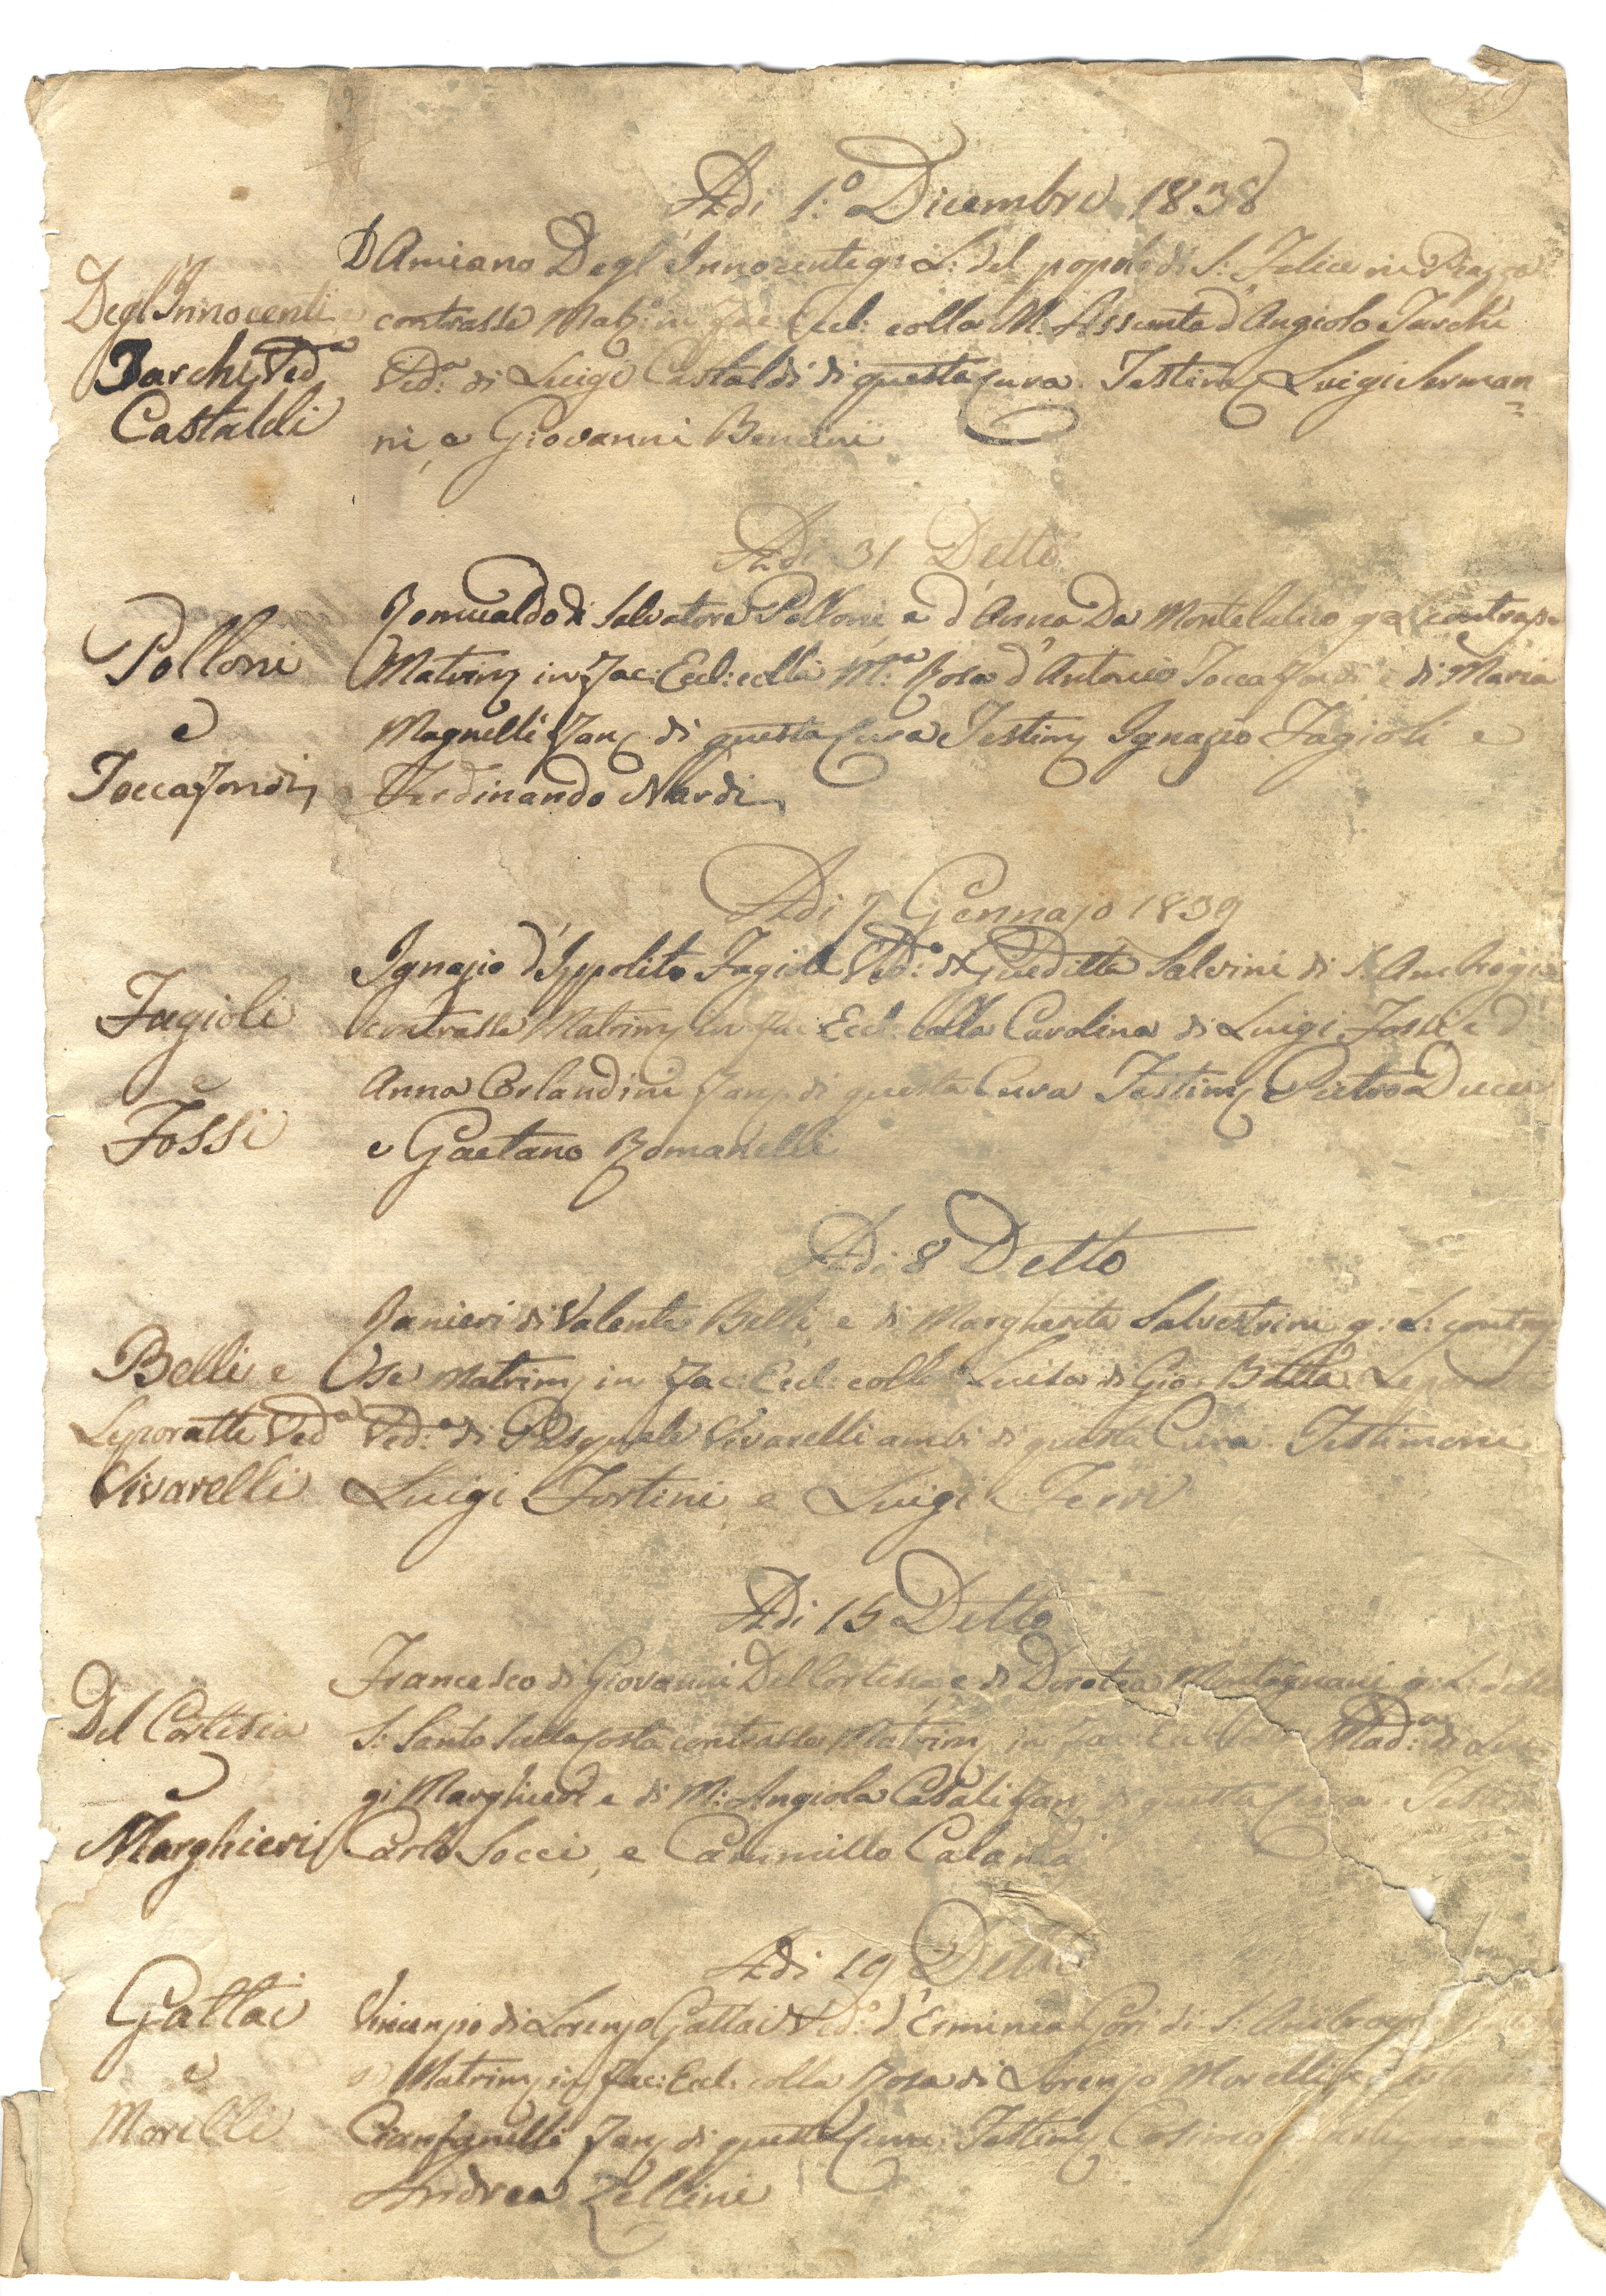 Adi 1.º Dicembre 1838
Degl'Innocenti e
Tarchi Ved.ª
Castaldi
DAmiano Degl'Innocenti g: L: del popolo di S. Felice in Piazza
contrasse Mat: in Fac: Eccl: colla M: Assunta d'Angiolo Tarchi
Ved.ª di Luigi Castaldi di questa Cura. Testim Luigi Serman=
ni, e Giovanni Bencini
Adi 31 Detto
Polloni
e
Toccafondi
Romualdo di Salvatore Polloni e d'Anna Da
Matrim in Fac: Eccl: colla M.ª Rosa d'Antonio Toccafondi e di Maria
Magnelli Fan di questa Cura Testim Ignazio Fagioli e
Ferdinando Nardi
Adi 7 Gennajo 1839
Fagioli
e
Fossi
Ignazio d'Ippolito Fagioli Ved.º di Giuditta Salvini di S. Ambrogio
contrasse Matrim in Fac: Eccl: colla Carolina di Luigi Fossi e d'
Anna Orlandini Fan di questa Cura Testim Pietro Ducci
e Gaetano Romanelli
Adi 8 Detto
Belli e
Leporatti Ved.ª
Vivarelli
Ranieri di Valente Belli, e di Margherita Salvestrini g: L: contras
se Matrim in Fac: Eccl: colla Luisa di Gio: Batta
Ved.ª di Pasquale Vivarelli ambi di questa Cura. Testimoni
Luigi Fortini, e Luigi Ferri
Adi 15 Detto
Del Cortesia
e
Marghieri
Francesco di Giovanni Del Cortesia, e di Dorotea g: L:
S: contrasse Matrim in Fac: Madª di Lui
gi Marghieri e di M: Angiola Casali Fan di questa Cura. Testim
Carlo Socci, e Cammillo Calamai
Adi 19 Detto
Gattai
e
Morelli
Vincenzio di Lorenzo Gattai Ved.º d'Erminia Gori di S: Ambrogio
Matrim in Fac: Eccl: colla Rosa di Lorenzo Morelli e
Cianfanelli Fan di questa Cura. Testim Cosimo
Andrea Zellini